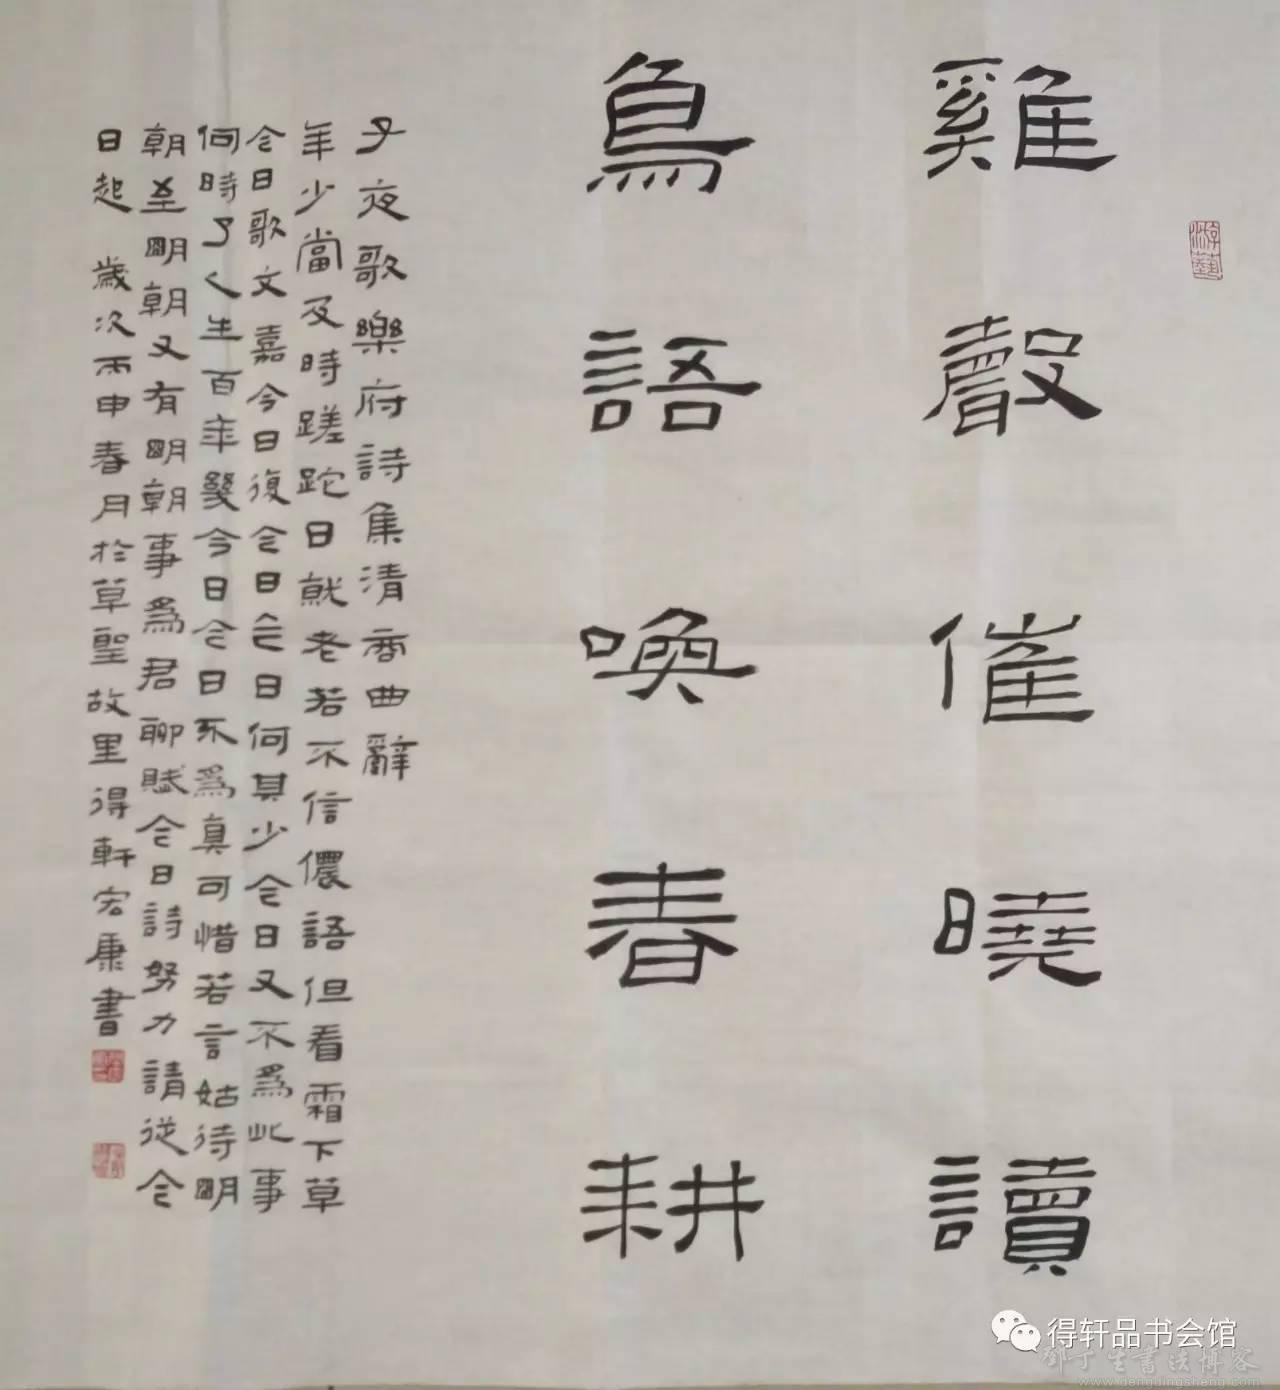 雞聲催曉讀
鳥語喚春耕
子夜歌樂府詩集清商曲辭
年少當及時蹉跎日就老若不信儂語但看霜下草
今日歌文嘉今日復今日今日何其少今日又不為此事
何時了人生百年幾今日今日不為真可惜若言姑待明
朝至明朝又有明朝事為君聊賦今日詩努力請從今
日起 歲次丙申春月於草聖故里得軒宏康書
游藝
得轩品书会馆
邓丁生书法博客
www.dengdingsheng.com